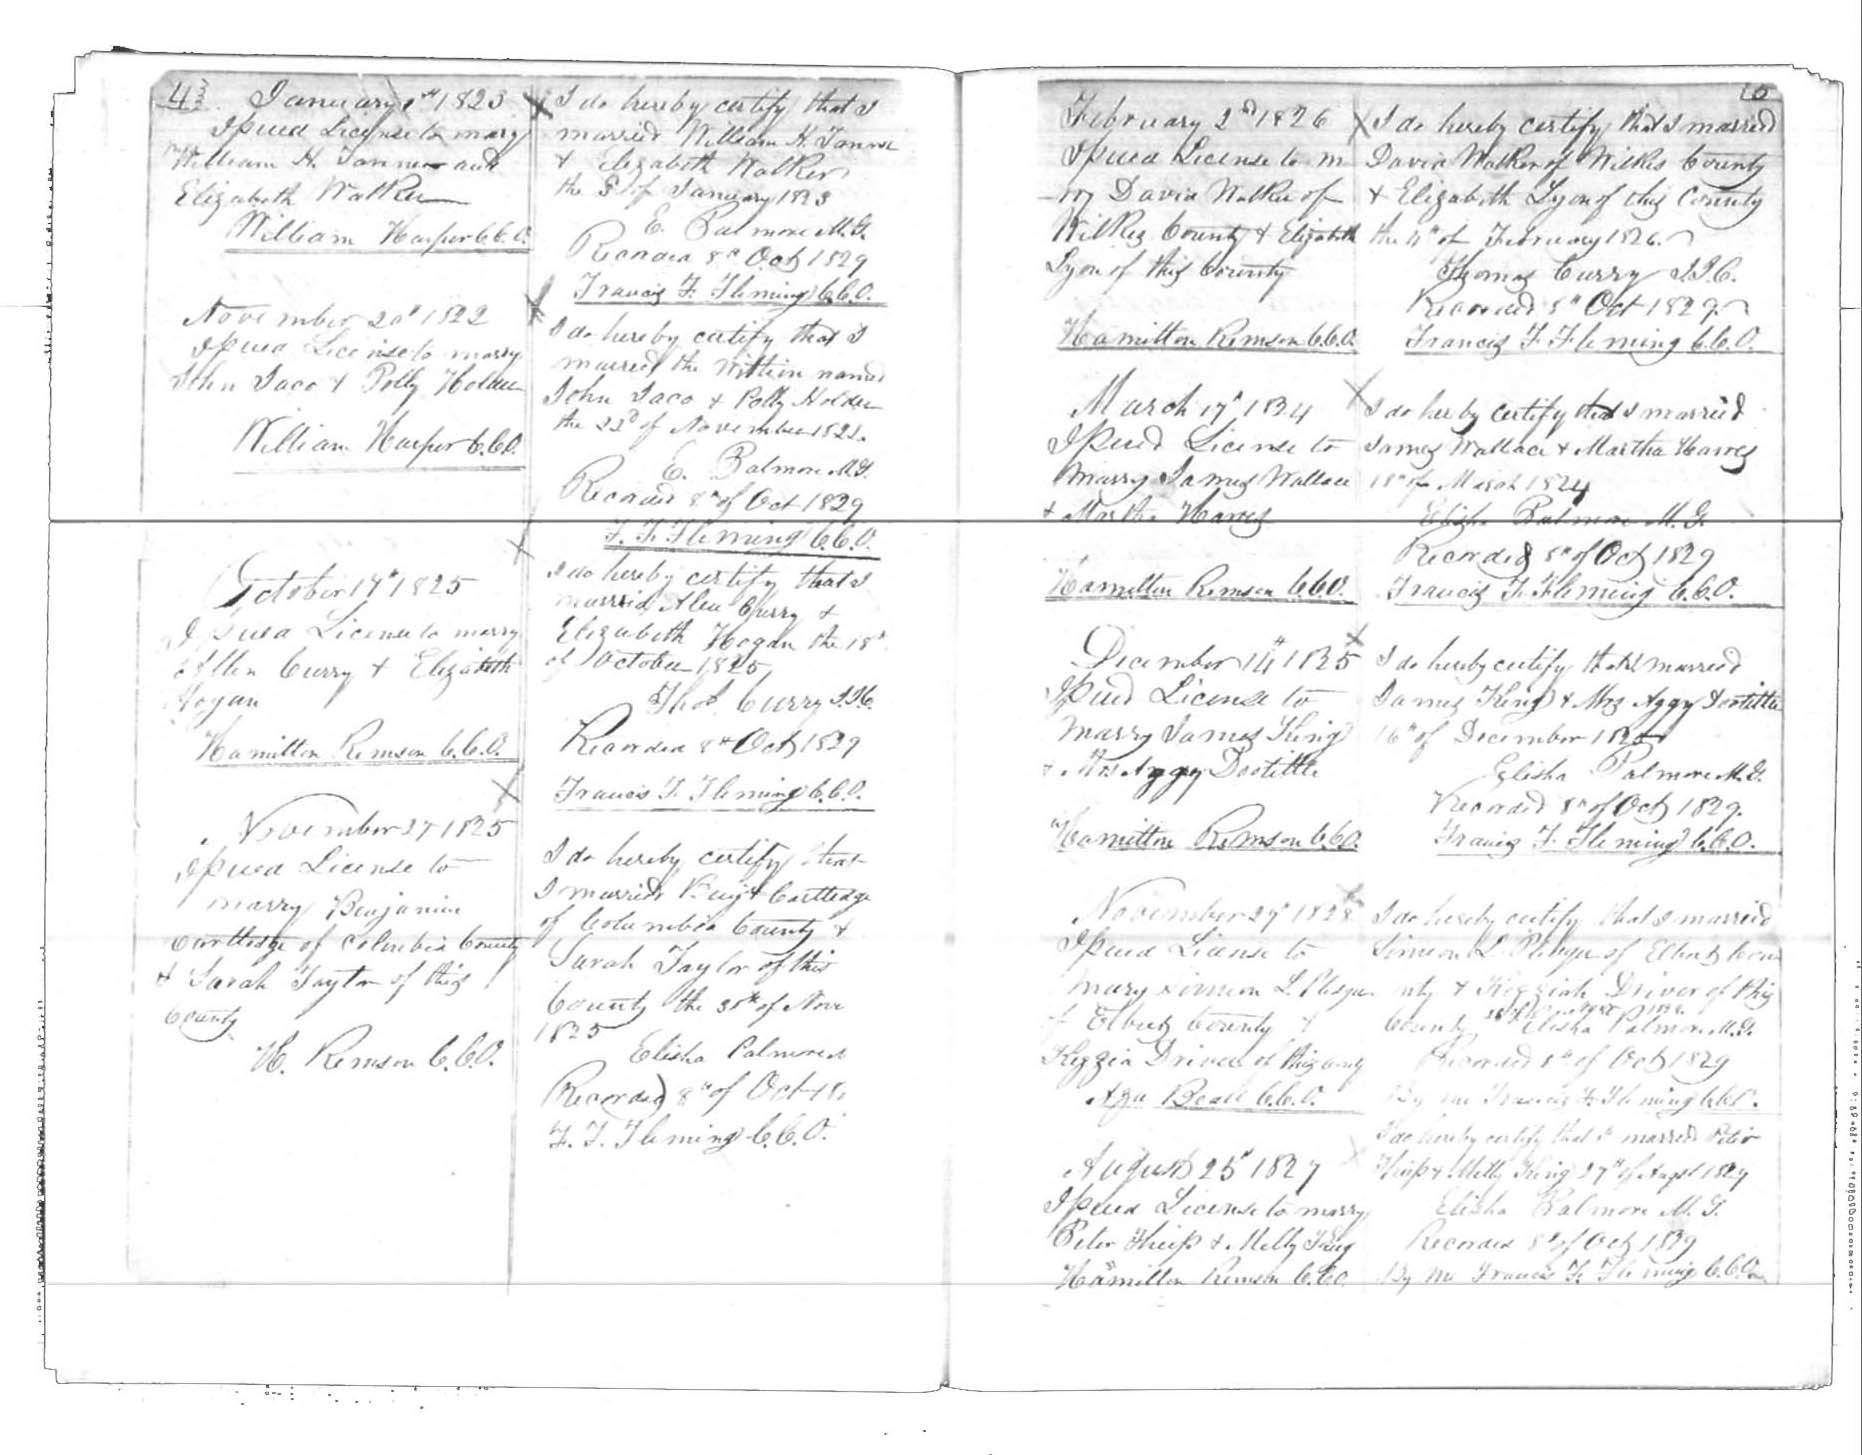 43
January 1st 1823
Issued License to mary
William H. Tanner and
Elizabeth Walker
William Harper C.C.O.
November 20th 1822
Issued License to marry
John Saco & Polly Holder
William Harper C.C.O.
October 17th 1825
Issued License to marry
Allen Curry & Elizabeth
Hogan
Hamilton Remson C.C.O.
November 27 1825
Issued License to
marry Benjamin
Cartledge of Columbia County
& Sarah Taylor of this
County
H. Remson C.C.O.
I do hereby certify that I
married William H. Tanner
& Elizabeth Walker
the of January 1823
E. Palmore M.G.
Recorded 8th Oct 1829
Francis F. Fleming C.C.O.
I do hereby certify that I
married the within named
John Saco & Polly Holder
the 22d of November 1822.
E. Palmore M.G.
Recorded 8th of Oct 1829
F. F. Fleming C.C.O.
I do hereby certify that I
married Curry &
Elizabeth Hogan the 18th
of October 1825
Thos. Curry J.I.C.
Recorded 8th Oct 1829
Francis F. Fleming C.C.O.
I do hereby certify that
I married Benj. Cartledge
of Columbia County &
Sarah Taylor of this
County the 30th of Nove
1825
Elisha Palmore
Recorded 8th of Oct
F. F. Fleming C.C.O.
February 2nd 1826
Issued License to m
-ry David Walker of
Wilkes County & Elizabeth
Lyon of this County
Hamilton Remson C.C.O.
March 17th 1824
Issued License to
marry James Wallace
& Martha Hawes
Hamilton Remson C.C.O.
December 14th 1825
Issued License to
marry James King
& Mrs Aggy Dootittle
Hamilton Remson C.C.O.
November 29th 1828
Issued License to
mary Simeon L.
of Elbert County &
Kezzia Driver of this county
Beall C.C.O.
August 25th 1827
Issued License to marry
Peter & Milly King
Hamilton Remson C.C.O.
I do hereby certify that I married
David Walker of Wilkes County
& Elizabeth Lyon of this County
the of February 1826.
Thomas Curry J.I.C.
Recorded 8th Oct 1829.
Francis F. Fleming C.C.O.
I do hereby certify that I married
James Wallace & Martha Hawes
18th of March 1824
Elisha Palmore M.G.
Recorded 8th of Oct 1829
Francis F. Fleming C.C.O.
I do hereby certify that I married
James King & Mrs Aggy Dootittle
16th of December 1825
Elisha Palmore M.G.
Recorded 8th of Oct 1829.
Francis F. Fleming C.C.O.
I do hereby certify that I married
Simeon L. of Elbert Cou
nty & Kezziah Driver of this
County Elisha Palmore M.G.
Recorded 8th of Oct 1829
By me Francis F. Fleming C.C.O.
I do hereby certify that I married Peter
& Milly King 27th of Augst 1827
Elisha Palmore M.G.
Recorded 8th of Oct 1829
By me Francis F. Fleming C.C.O.